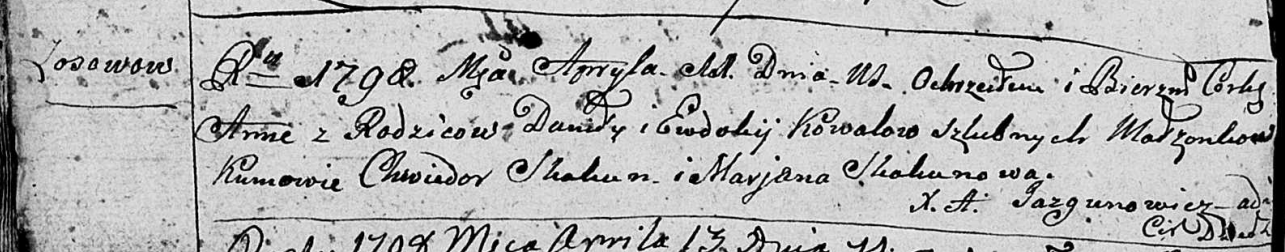 Losowow
Rku 1798. Mca Apryla. Dnia Ochrzciłem i Bierzm Corkę
Annę z Rodzicow Dawidy i Ewdokij Kowalow szlubnych Małżonkow
Kumowie Chwiedor Skakun. i Marjana Skakunowa.
X. A. Jazgunowicz adi
1798 Mca Apryla 13 Dnia